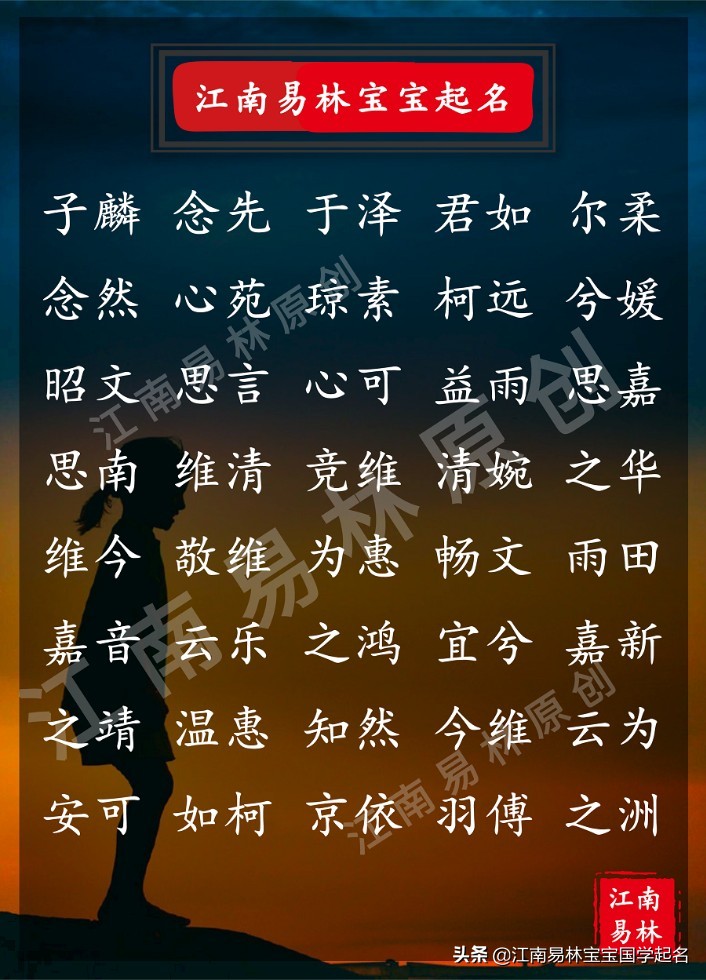 江南易林宝宝起名
子麟 念先 于泽 君如 尔柔
念然 心苑 琼素 柯远 兮媛
昭文 思言 心可 益雨 思嘉
思南 维清 竞维 清婉 之华
维今 敬维 为惠 畅文 雨田
嘉音 云乐 之鸿 宜兮 嘉新
之靖 温惠 知然 今维 云为
安可 如柯 京依 羽傅 之洲
江南易林原创
江南易林原创
江南易林原创
江南
易林
头条 @江南易林宝宝国学起名